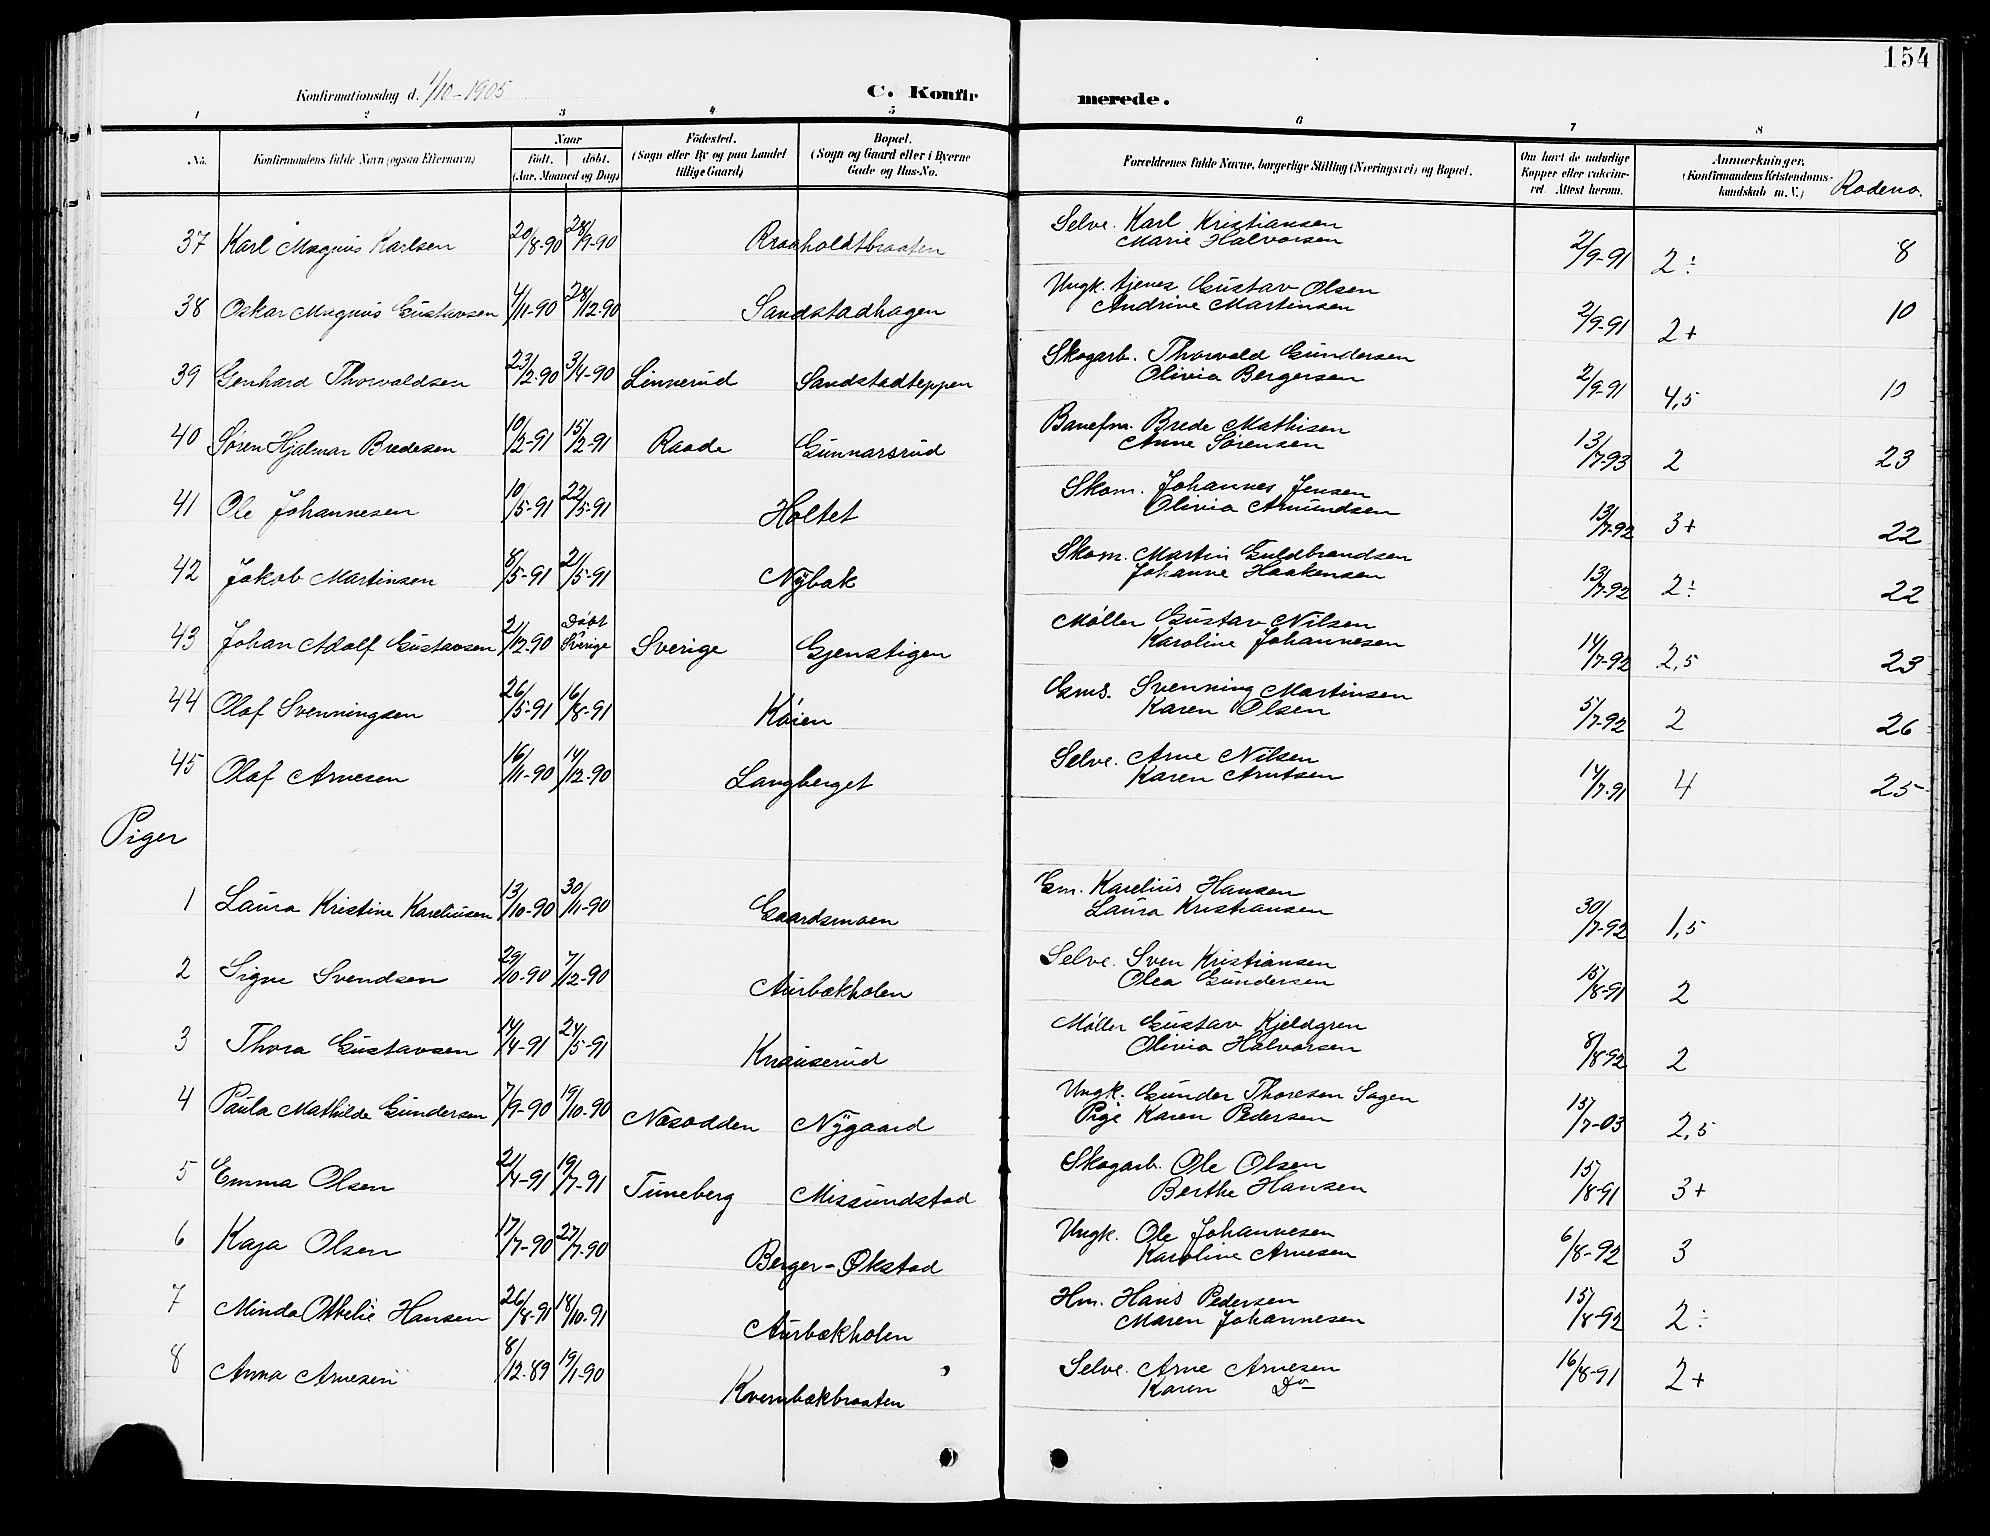 154
Konfirmationsdag d. 1/10-1905
C. Konfir merede.
1 2 3 4 5 6 7 8
No.
Konfirmandens fulde Navn (ogsaa Efternavn)
Naar
født. døbt.
(Aar, Maaned og Dag)
Fødested.
(Sogn eller By og paa Landet
tillige Gaard)
Bopæl.
(Sogn og Gaard eller i Byerne
Gade og Hus-No.
Forældrenes fulde Navne, borgerlige Stilling (Næringsvei) og Bopæl.
Om havt de naturlige
Kopper eller vakcine-
ret. Attest herom.
Anmærkninger.
(Konfirmandens Kristendoms-
kundskab m. V.)
Rodeno.
37 Karl Magnus Karlsen 20/8-90 28/9-90 Raaholdtbraaten Selve. Karl Kristiansen 2/9-91 2÷ 8
Marie Halvorsen
38 Oskar Magnus Gustavsen 4/11-90 28/12-90 Sandstadhagen Ungk. tjenes Gustav Olsen 2/9-91 2+ 10
Andrine Martinsen
39 Genhard Thorvaldsen 23/2-90 3/4-90 Linnerud Sandstadteppen Skogarb. Thorvald Gundersen 2/9-91 4,5 10
Olivia Bergersen
40 Søren Hjalmar Bredesen 10/2-91 15/2-91 Raade Gunnarsrud Banefm. Brede Mathisen 13/7-93 2 23
Anne Sørensen
41 Ole Johannesen 10/5-91 22/5-91 Holtet Skom. Johannes Jensen 13/7-92 3+ 22
Olivia Amundsen
42 Jakob Martinsen 8/5-91 21/5-91 Nybak Skom. Martin Guldbrandsen 13/7-92 2÷ 22
Johanne Haakensen
43 Johan Adolf Gustavsen 21/12-90 Døbt Sverige Sverige Gjenstigen Møller Gustav Nilsen 14/7-92 2,5 23
Karoline Johannesen
44 Olaf Svenningsen 26/5-91 16/8-91 Køien Gms. Svenning Martinsen 5/7-92 2 26
Karen Olsen
45 Olaf Arnesen 16/11-90 14/12-90 Langberget Selve. Arne Nilsen 14/7-91 4 25
Karen Arntsen
Piger
1 Laura Kristine Kareliusen 13/10-90 30/11-90 Gaardsmoen Gm. Karelius Hansen 30/7-92 1,5
Laura Kristiansen
2 Signe Svendsen 29/10-90 7/12-90 Aurbækholen Selve. Sven Kristiansen 15/8-91 2
Olea Gundersen
3 Thora Gustavsen 14/4-91 24/5-91 Knauserud Møller Gustav Kjeldgren 8/8-92 2
Olivia Halvorsen
4 Paula Mathilde Gundersen 7/9-90 19/10-90 Næsodden Nygaard Ungk. Gunder Thoresen Sagen 15/7-03 2,5
Pige Karen Pedersen
5 Emma Olsen 21/4-91 19/7-91 Tuneberg Missundstad Skogarb. Ole Olsen 15/8-91 3+
Berthe Hansen
6 Kaja Olsen 17/7-90 27/7-90 Berger-Økstad Ungk. Ole Johannesen 6/8-92 3
Karoline Arnesen
7 Minda Othelie Hansen 26/8-91 18/10-91 Aurbækholen Hm. Hans Pedersen 15/8-92 2÷
Maren Johannesen
8 Anna Arnesen 8/12-89 19/1-90 Kvernbækbraaten Selve. Arne Arnesen 16/8-91 2+
Karen Do